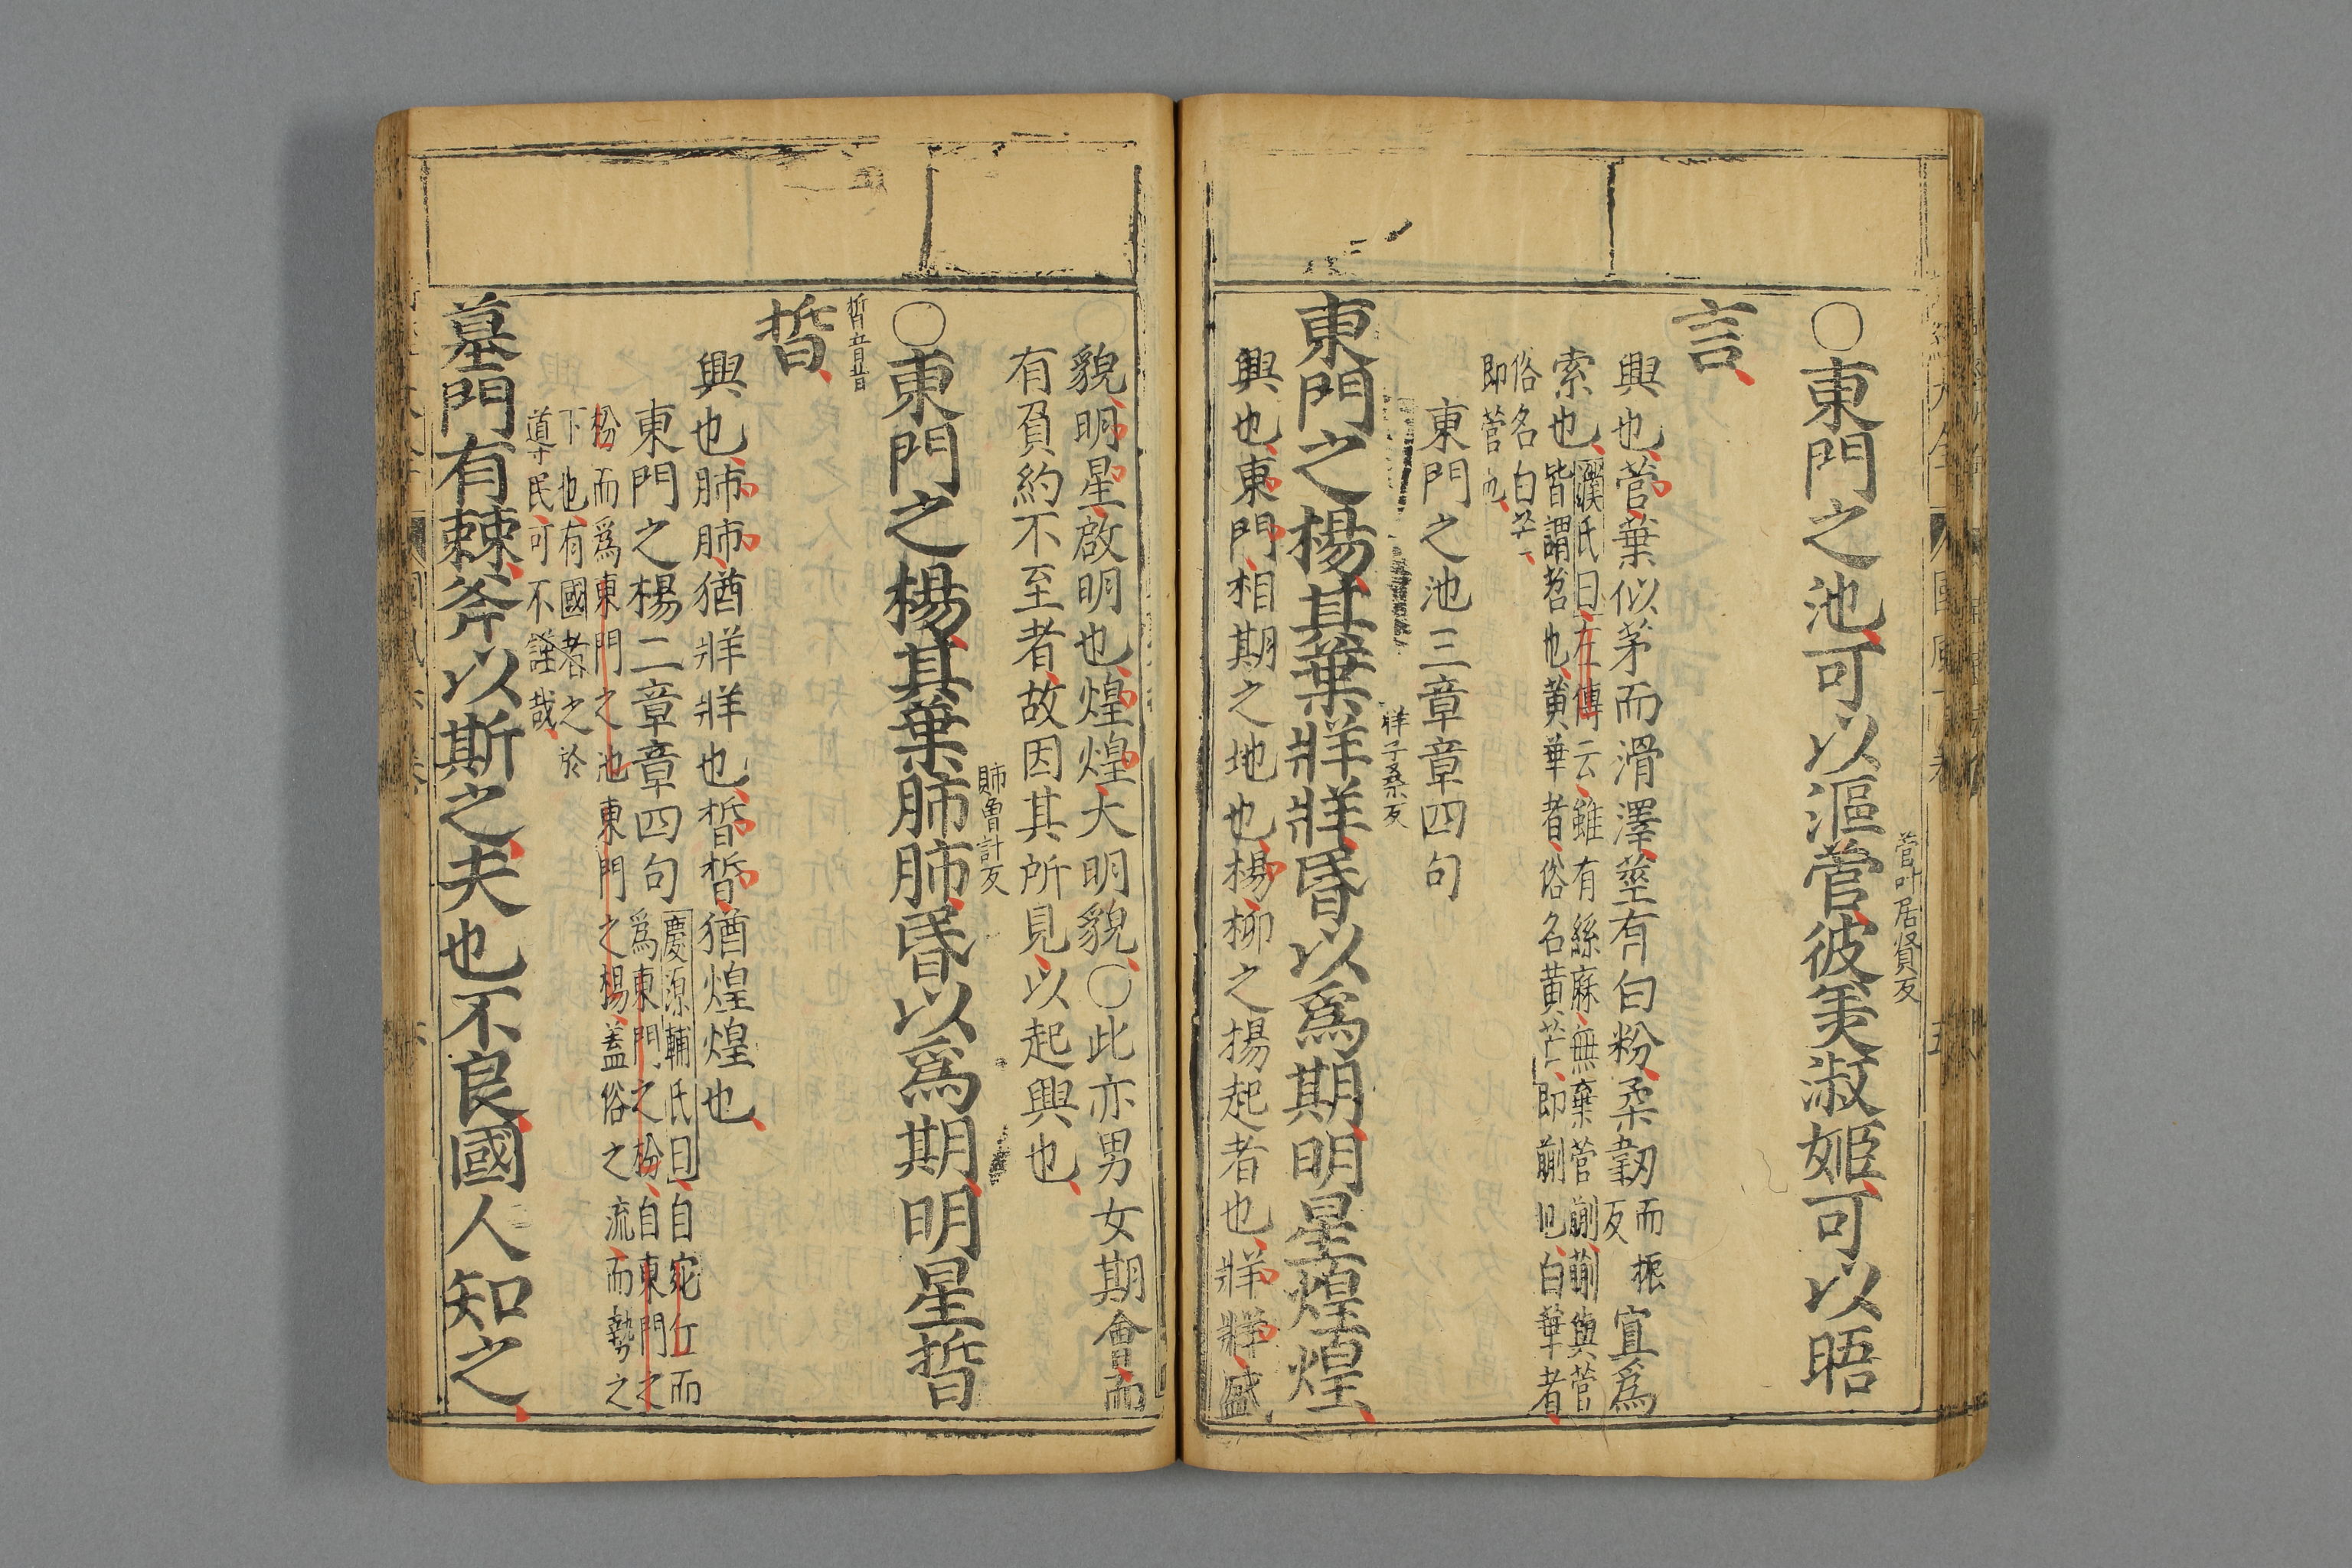 菅叶居賢反
○東門之池可以漚菅彼美淑姬可以晤
言
興也菅葉似茅而滑澤莖有白粉柔韌而振反宜爲
索也濮氏曰左傳云雖有絲麻無棄菅蒯蒯與菅
皆謂茗也黄華者俗名黄芒即蒯也白華者
俗名白芒
即菅也
東門之池三章章四句
牂子桑反
東門之楊其葉牂牂昏以爲期明星煌煌
興也東門相期之地也楊柳之揚起者也牂牂盛
貌明星啟明也煌煌大明貌○此亦男女期會而
有負約不至者故因其所見以起興也
肺魯計反
○東門之楊其葉肺肺昏以爲期明星晢
晢音昔
晢
興也肺肺猶牂牂也晢晢猶煌煌也
東門之楊二章章四句慶源輔氏曰自宛丘而
爲東門之枌自東門之
枌而爲東門之池東門之楊盖俗之流而勢之
下也有國者之於
導民可不謹哉
墓門有棘斧以斯之夫也不良國人知之